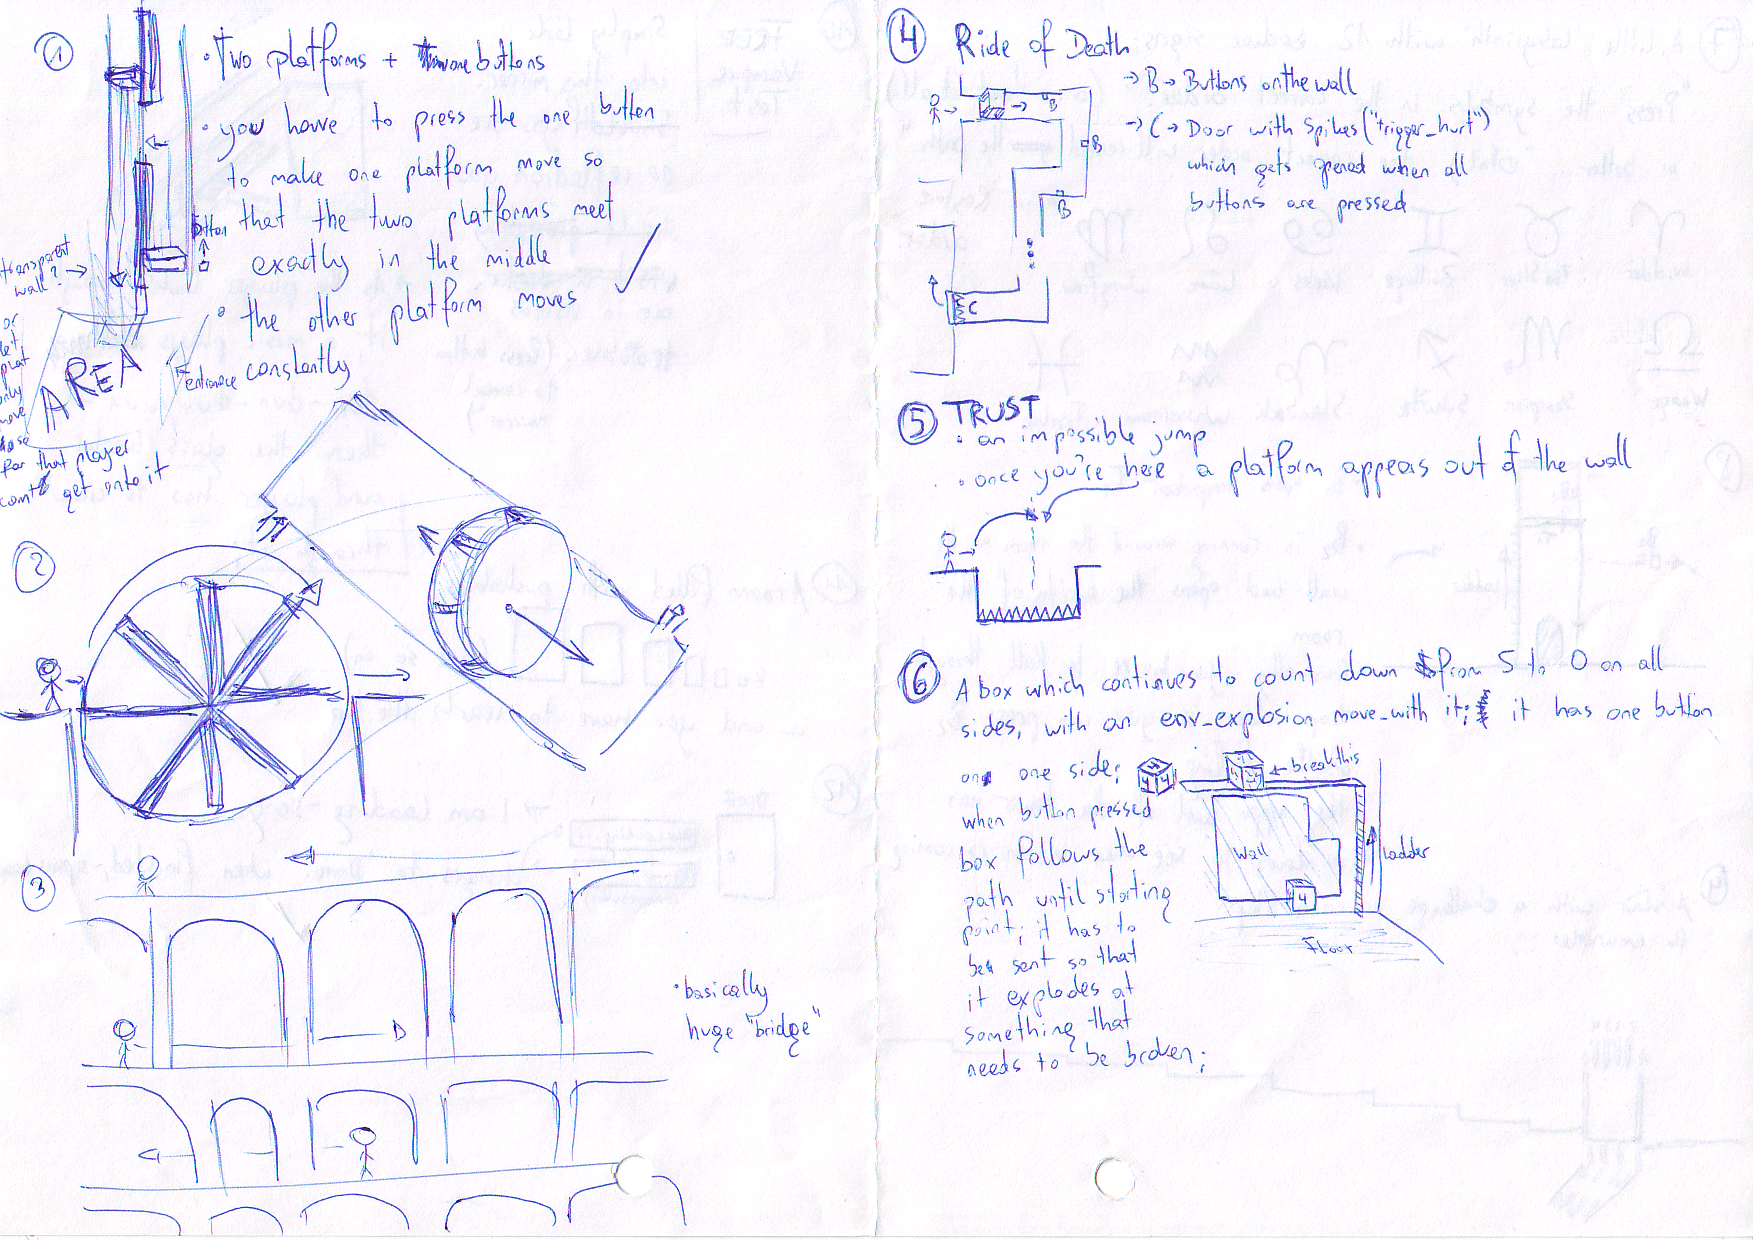 1
• Two platforms + one buttons
• you have to press the one button
to make one platform move so
that the two platforms meet
exactly in the middle
• the other platform moves
constantly
button
transparent
wall? →
AREA
entrance
or
let
plat
only
move
for that player
can't get onto it
2
3
• basically
huge "bridge"
4 Ride of Death
→ B → Buttons on the wall
→ C → Door with Spikes ("trigger_hurt")
which gets opened when all
buttons are pressed
B
B
B
C
5 TRUST
• an impossible jump
• once you're here a platform appears out of the wall
6 A box which continues to count down from 5 to 0 on all
sides, with an env_explosion move_with it; it has one button
on one side;
when button pressed
box follows the
path until starting
point; it has to
be sent so that
it explodes at
something that
needs to be broken;
4 4
← break this
Wall
Ladder
4
Floor